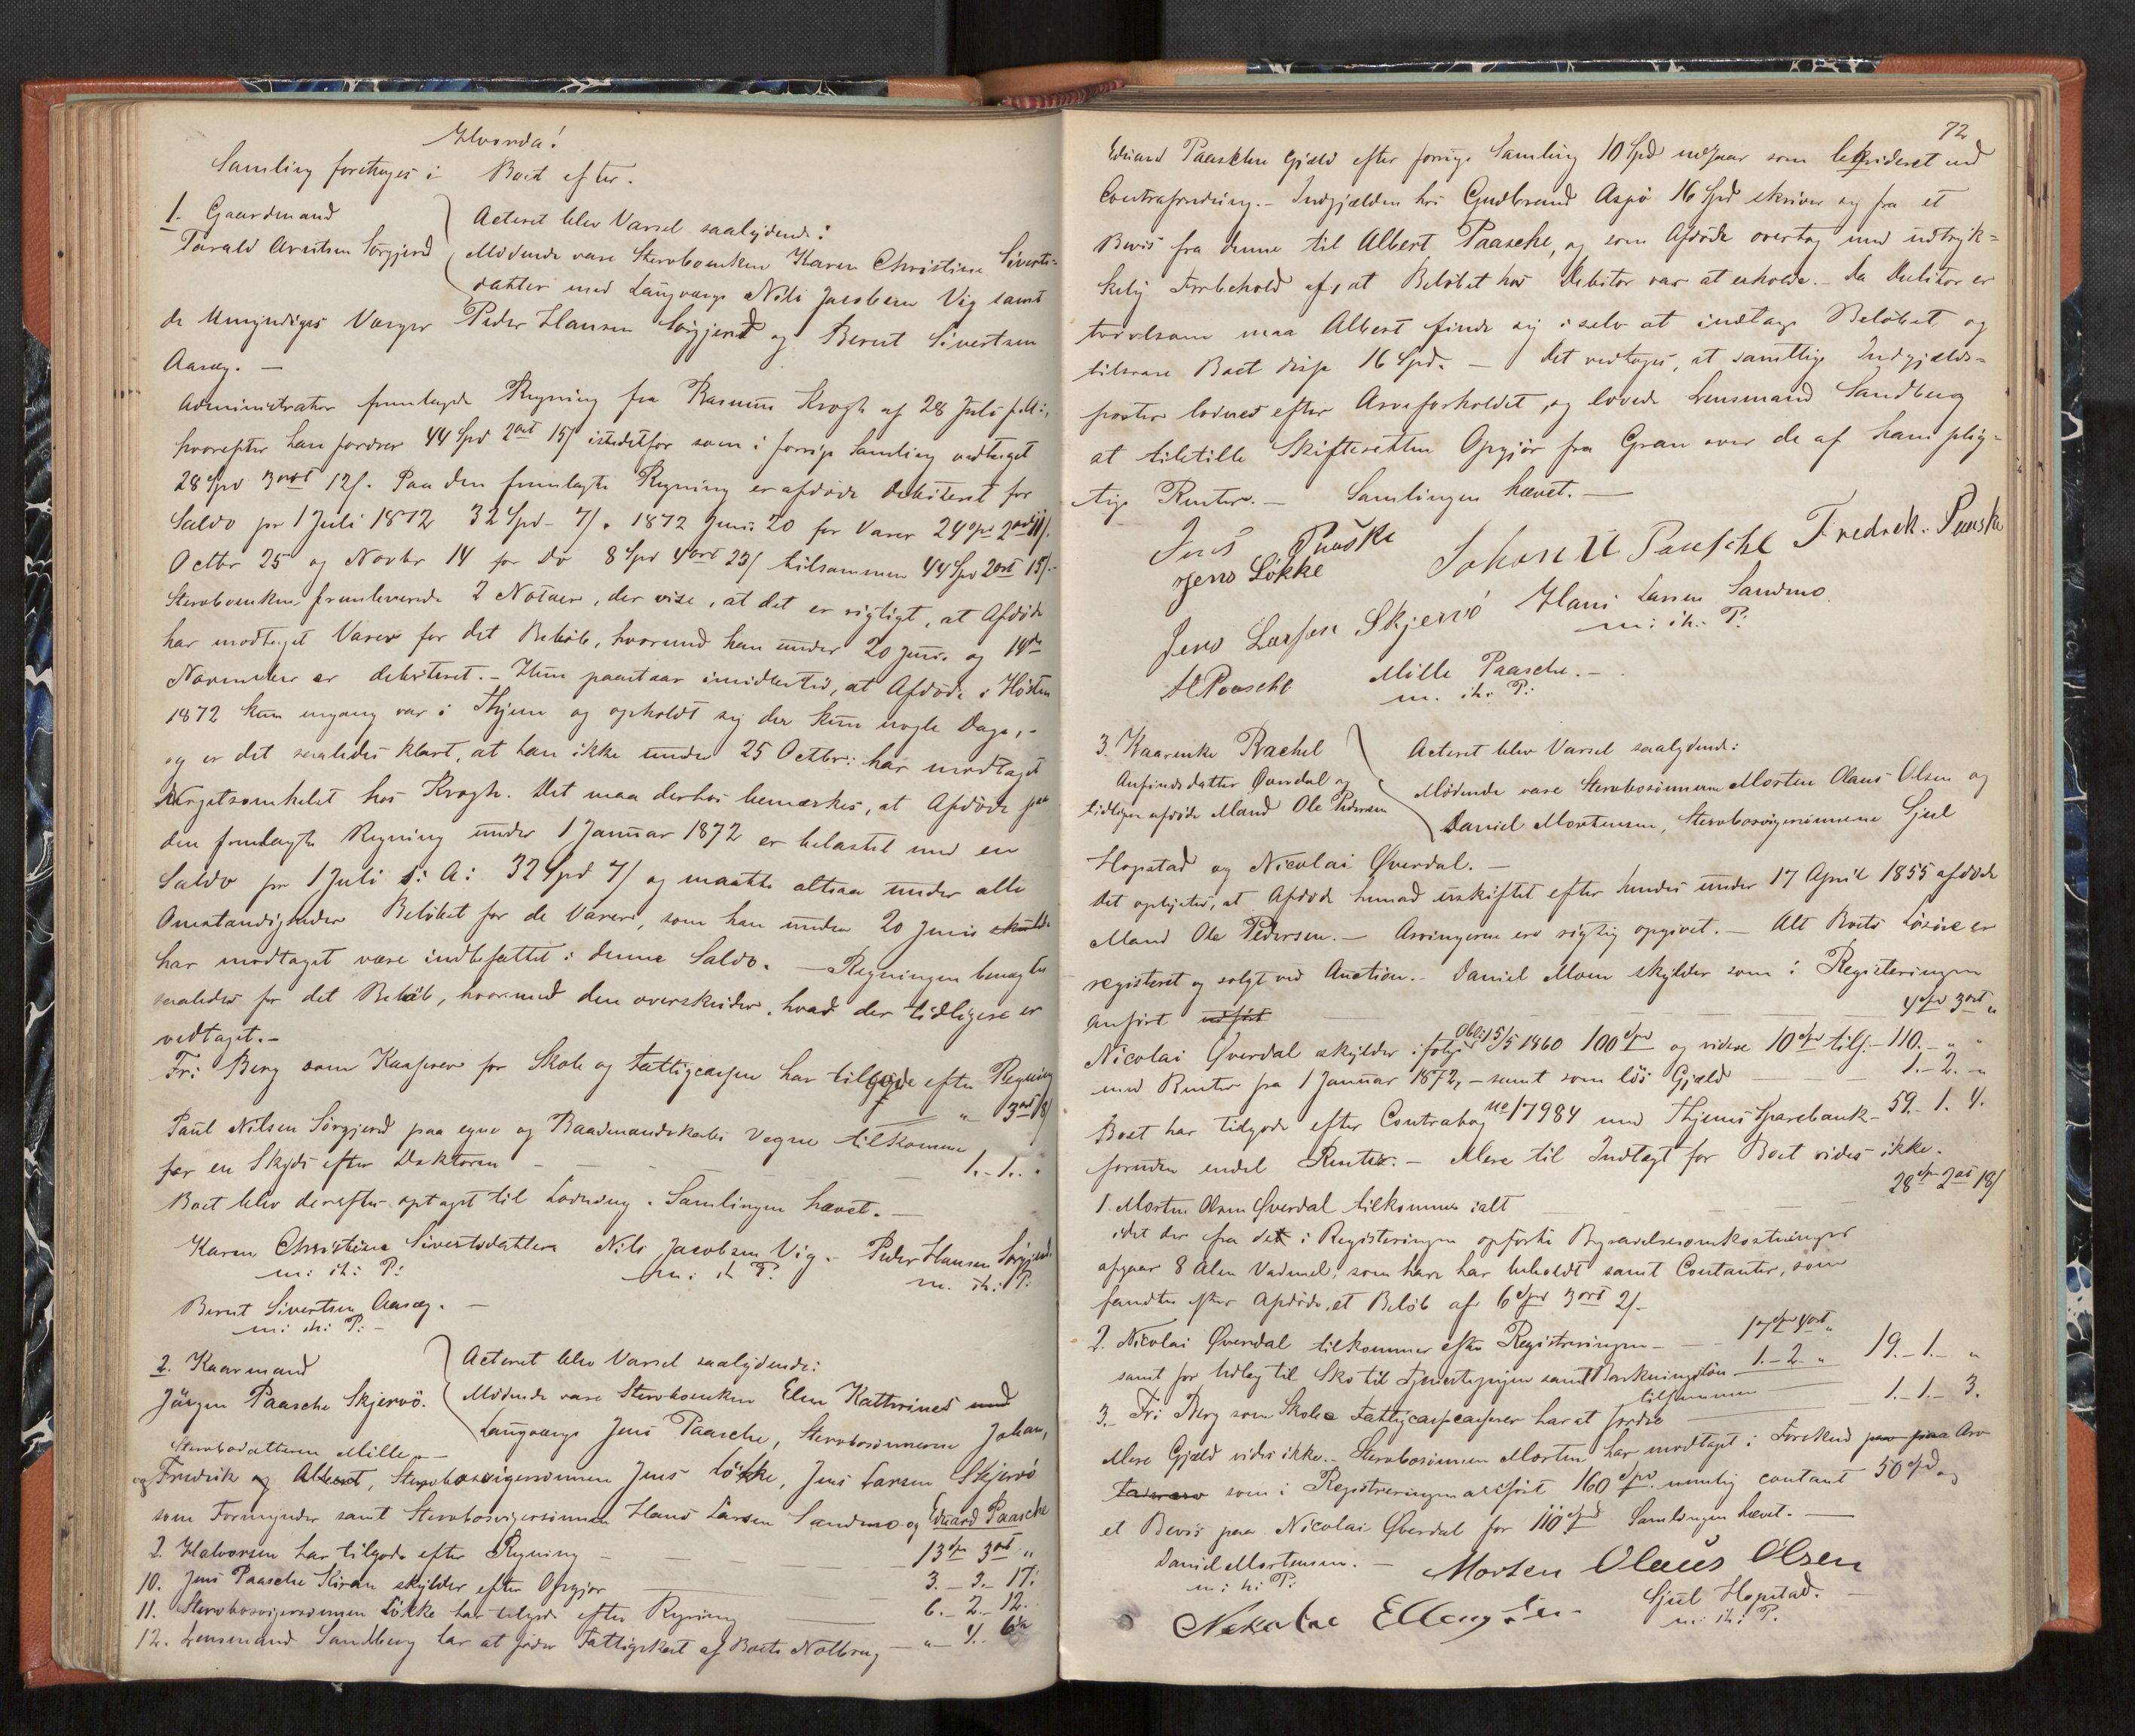 Hvorda!
Samling foretages i Boet efter.
1. Gaardmand
Tarald Arntsen Sørgjerd
Acteret blev Varsel saalydende:
Mødende vare Stervboenken Karen Christine Siverts-
datter med Laugværge Nils Jacobsen Vig samt
de Umyndiges Værger Peder Hansen Sørgjerd og Bernt Sivertsen
Aasæg. —
Administrator fremlagde Regning fra Rasmus Krogh af 28 Juli f. A:,
hvorefter han fordrer 44 Spd 2ort 15/ istedetfor som i forrige Samling vedtaget
28 Spd 3ort 12/. Paa den fremlagte Regning er afdøde debiteret for
Saldo pr 1 Juli 1872 32 Spd - 7/. 1872 Juni 20 for Varer 24 Spd 2ort 11/.
Octbr 25 og Novbr 14 for Do 8 Spd 4ort 23/ tilsammen 44 Spd 2ort 15/.-
Stervboenken fremleverede 2 Notaer, der vise, at det er rigtigt, at Afdøde
har modtaget Varer for det Beløb, hvorimod han under 20 Juni og 14de
November er debiteret. - Hun paastaar imidlertid, at Afdøde i Høsten
1872 kun engang var i Thjem og opholdt sig der kun nogle Dage, -
og er det saaledes klart, at han ikke under 25 Octbr: har modtaget
Nogetsomhelst hos Krogh. Det maa derhos bemærkes, at Afdøde paa
den fremlagte Regning under 1 Januar 1872 er belastet med en
Saldo pr 1 Juli s: A: 32 Spd 7/ og maatte altsaa under alle
Omstændigheder Beløbet for de Varer, som han under 20 Juni skulde
har modtaget være indbefattet i denne Saldo. — Regningen benægtes
saaledes for det Beløb, hvormed den overskrider, hvad der tidligere er
vedtaget. -
Fr: Berg som Kasserer for Skole og Fattigcassen har tilgode efter Regning
" 3ort 18/
Paul Nilsen Sørgjerd paa egne og Baadmandskabs Vegne tilkomme
for en Skyds efter Doktoren - — — — 1.-1..
Boet blev derefter optaget til Lodning. Samlingen hævet. —
Karen Christine Sivertsdatter Nils Jacobsen Vig. Peder Hansen Sørgjerd
m: ih: P: m: ih P: m. ih: P:
Bernt Sivertsen Aasæg. —
m: ih: P: -
2. Kaarmand
Jürgen Paasche Skjervö.
Acteret blev Varsel saalydende:
Mødende vare Stervboenken Elen Kathrines med
Laugværge Jens Paasche, Stervbosønnerne Johan,
Stervbodatteren Mille, —
og Fredrik og Albert, Stervbosvigersønnen Jens Løkke, Jens Larsen Skjervö
som Formynder samt Stervbosvigersønnen Hans Larsen Sandmo og Eduard Paasche
2. Halvorsen har tilgode efter Regning - — — 13 Spd 3ort "
10. Jens Paasche Kiran skylder efter Opgjør — 3. - 3. - 17:
11. Stervbosvigersønnen Løkke har tilgode efter Regning — 6. - 2. - 12.
12. Lensmand Sandberg har at fordre Fattigskat af Boets — " 4.
72
Eduard Paasches Gjæld efter forrige Samling 10 Spd udgaar som lekvideret ved
Contrafordring. - Indgjælden hos Gudbrand Aspö 16 Spd skriver sig fra et
Bevis fra denne til Albert Paasche, og som Afdøde overtog med udtryk-
kelig Forbehold af, at Beløbet hos Debitor var at erholde. - Da Debitor er
tvivlsom maa Albert finde sig i selv at indtage Beløbet og
tilsvare Boet disse 16 Spd. — Det vedtoges, at samtlige Indgjælds-
poster lodnes efter Arveforholdet, og lovede Lensmand Sandberg
at tilstille Skifteretten Opgjør fra Gran over de af ham plig-
tige Renter. — Samlingen hævet. —
Jens Paaske Johan U Paasche Fredrek. Paaske
Jens Løkke
Jens Larsen Skjervö Hans Larsen Sandmo.
m: ih: P:
A Paasche Mille Paasche. -
m. ih: P:
3. Kaarenke Rachel
Anfinsdatter Øverdal og
tidligere afdøde Mand Ole Pedersen
Acteret blev Varsel saalydende:
Mødende vare Stervbosønnerne Morten Olaus Olsen og
Daniel Mortensen, Stervbosvigersønnerne Sjul
Hopstad og Nicolai Øverdal. —
Det oplystes, at Afdøde hensad uskiftet efter hendes under 17 April 1855 afdøde
Mand Ole Pedersen. — Arvingerne ere rigtig opgivet. — Alt Boets Løsøre er
registeret og solgt ved Auction. - Daniel Moen skylder som i Registeringen
anført udført — — — 4 Spd 3ort "
Nicolai Øverdal skylder ifølge Obl: 15/5 1860 100 Spd og videre 10 Spd tils. - 110. - " "
med Renter fra 1 Januar 1872, - samt som løs Gjæld — — 1. - 2. - "
Boet har tilgode efter Contrabog No 17984 med Thjems Sparebank - 59. - 1. 4.
foruden endel Renter. - Mere til Indtægt for Boet vides ikke.
1. Morten Olsen Øverdal tilkommer ialt — — — 28 Spd 2ort 18/
idet der fra det i Registeringen opførte Begravelsesomkostninger
afgaar 8 Alen Vadmel, som han har beholdt samt Contanter, som
fandtes efter Afdøde, et Beløb af 6 Spd 3ort 2/.
2. Nicolai Øverdal tilkommer efter Registreringen - - 17 Spd 4ort "
samt for Udlæg til Sko til Tjenestepigen samt 1. - 2. " 19. - 1. - "
tilsammen
3. Fr: Berg som Skole & Fattigcassecasserer har at fordre — 1. - 1. - 3.
Mere Gjæld vides ikke. - Stervbosønnen Morten har modtaget i Forskud paa Arv
som i Registreringen anført 160 Spd. nemlig contant 50 Spd og
et Bevis paa Nicolai Øverdal for 110 Spd Samlingen hævet. —
Daniel Mortensen. — Morten Olaus Olsen
m: ih: P:
Nekolai Sjul Hopstad. —
m: ih: P.